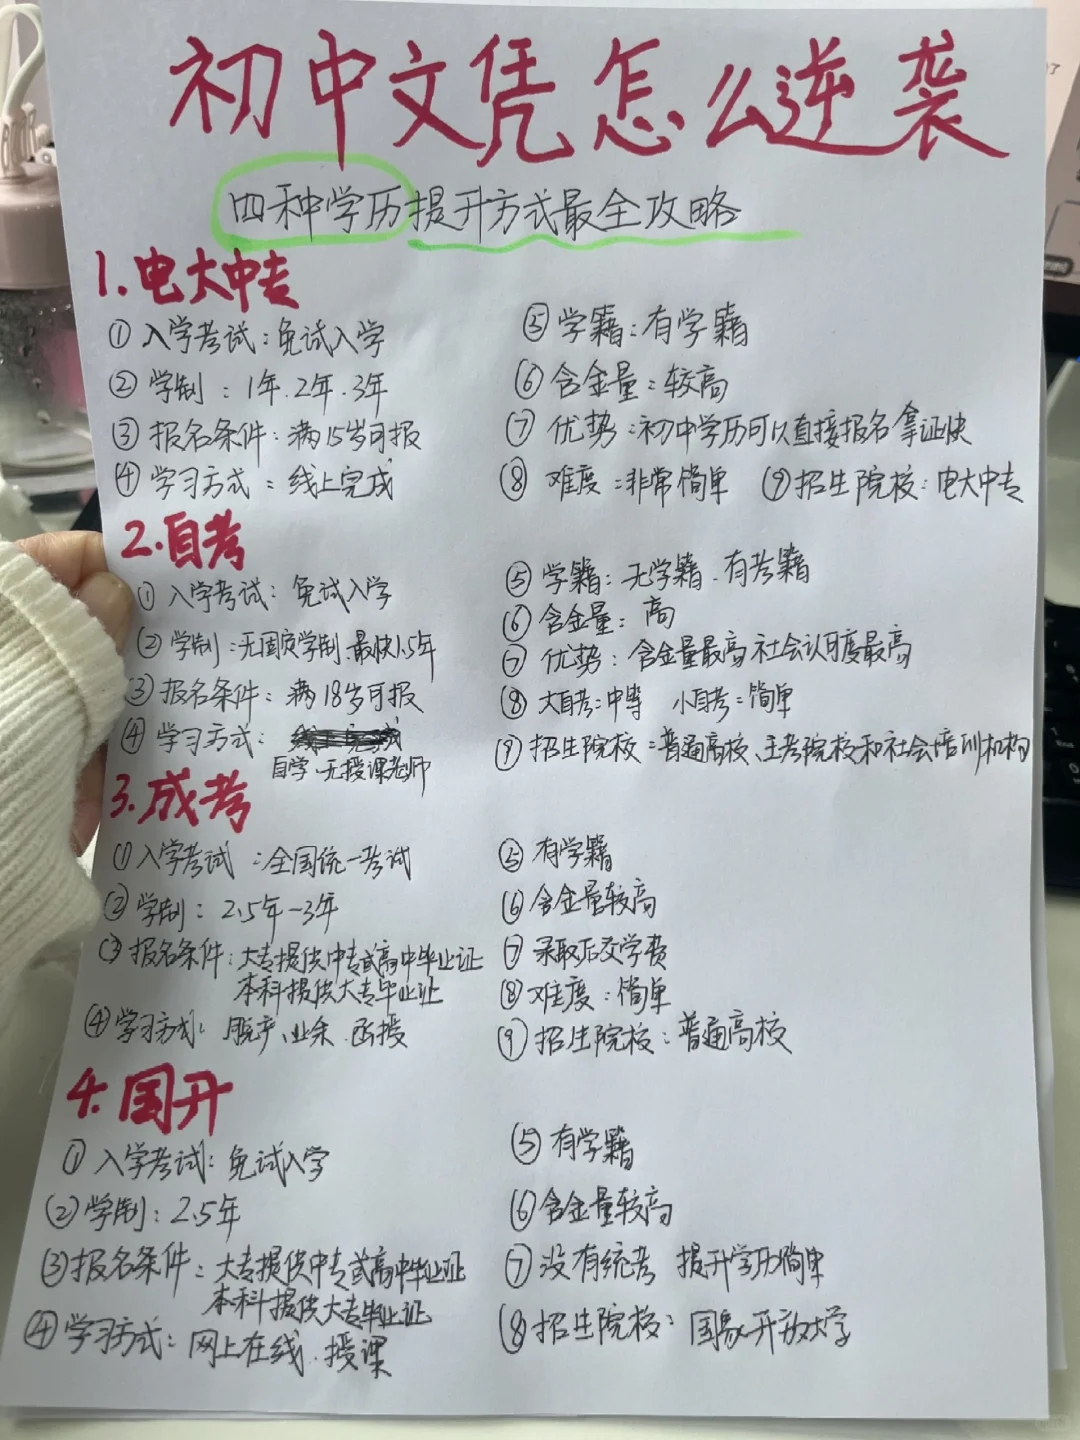 初中文凭怎么逆袭
四种学历提升方式最全攻略
1.电大中专
①入学考试:免试入学
②学制:1年.2年.3年
③报名条件:满15岁可报
④学习方式:线上完成
⑤学籍:有学籍
⑥含金量:较高
⑦优势:初中学历可以直接报名拿证快
⑧难度:非常简单 ⑨招生院校:电大中专
2.自考
①入学考试:免试入学
②学制:无固定学制.最快1.5年
③报名条件:满18岁可报
④学习方式:
自学.无授课老师
⑤学籍:无学籍.有考籍
⑥含金量:高
⑦优势:含金量最高社会认可度最高
⑧大自考:中等 小自考:简单
⑨招生院校:普通高校、主考院校和社会培训机构
3.成考
①入学考试:全国统一考试
②学制:2.5年-3年
③报名条件:大专提供中专或高中毕业证
本科提供大专毕业证
④学习方式:脱产、业余.函授
⑤有学籍
⑥含金量较高
⑦录取后交学费
⑧难度:简单
⑨招生院校:普通高校
4.国开
①入学考试:免试入学
②学制:2.5年
③报名条件:大专提供中专或高中毕业证
本科提供大专毕业证
④学习方式:网上在线.授课
⑤有学籍
⑥含金量较高
⑦没有统考 提升学历简单
⑧招生院校:国家开放大学